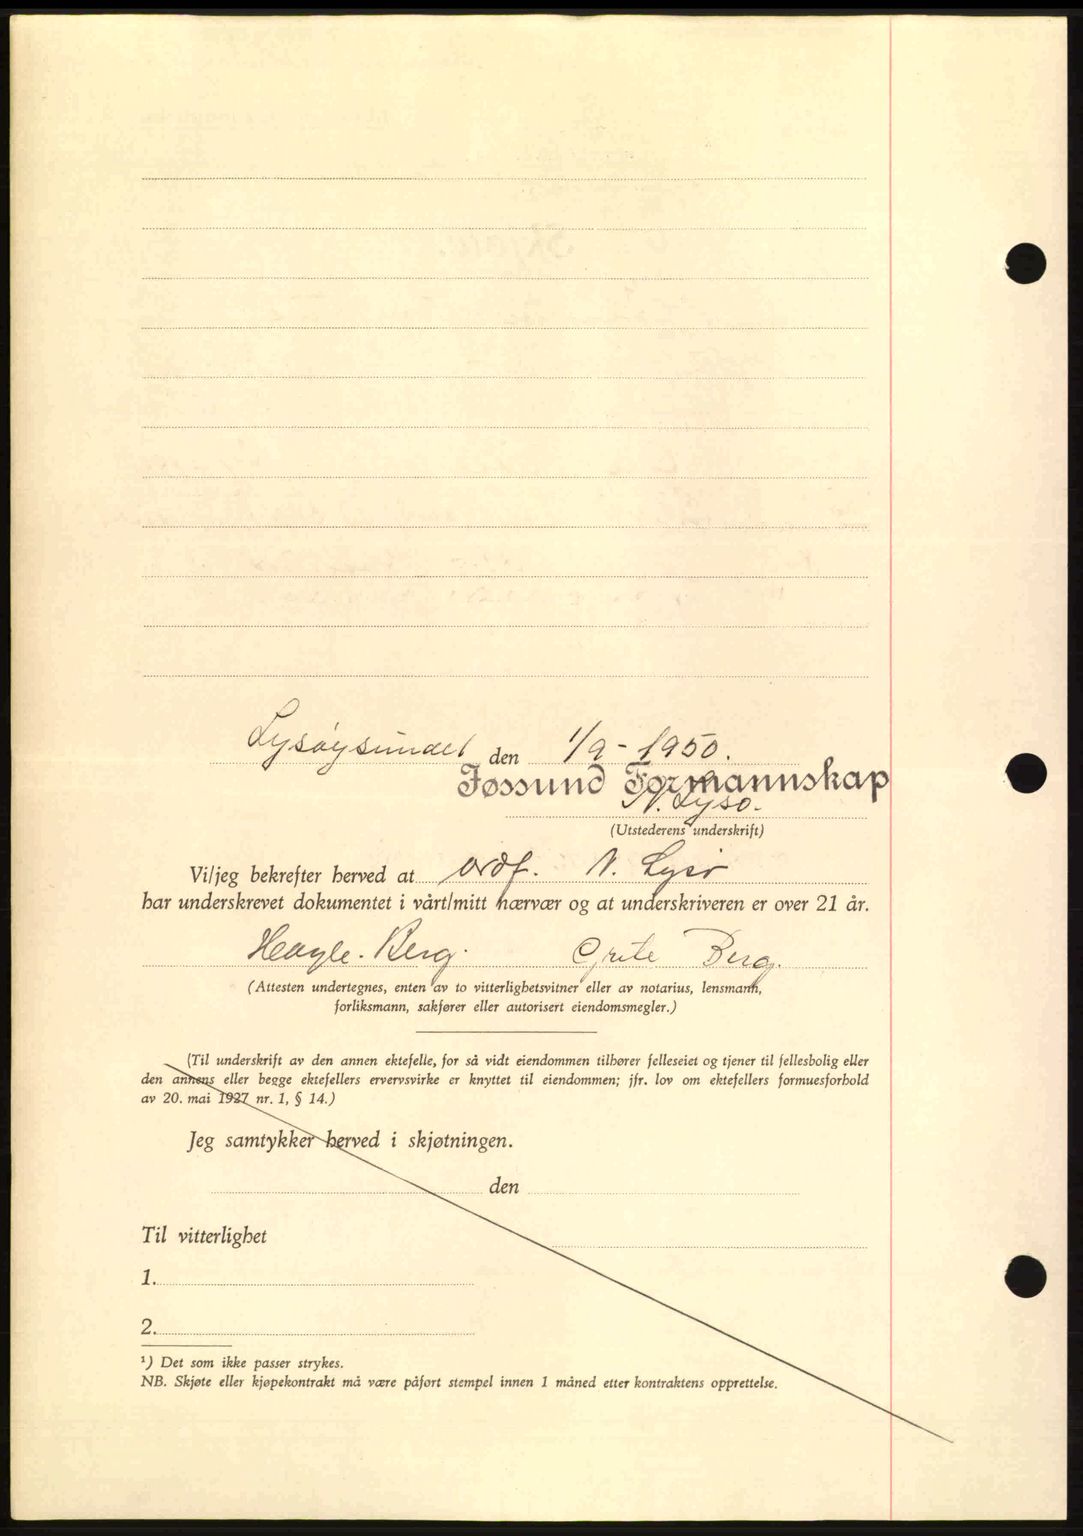 Lysøysundet den 1/9-1950.
Jøssund Formannskap
N. Lysø.
(Utstederens underskrift)
Vi/jeg bekrefter herved at ordf. N. Lysø
har underskrevet dokumentet i vårt/mitt nærvær og at underskriveren er over 21 år.
Berg. Grete Berg.
(Attesten undertegnes, enten av to vitterlighetsvitner eller av notarius, lensmann,
forliksmann, sakfører eller autorisert eiendomsmegler.)
(Til underskrift av den annen ektefelle, for så vidt eiendommen tilhører felleseiet og tjener til fellesbolig eller
den annens eller begge ektefellers ervervsvirke er knyttet til eiendommen; jfr. lov om ektefellers formuesforhold
av 20. mai 1927 nr. 1, § 14.)
Jeg samtykker herved i skjøtningen.
den
Til vitterlighet
1.
2.
¹) Det som ikke passer strykes.
NB. Skjøte eller kjøpekontrakt må være påført stempel innen 1 måned etter kontraktens opprettelse.